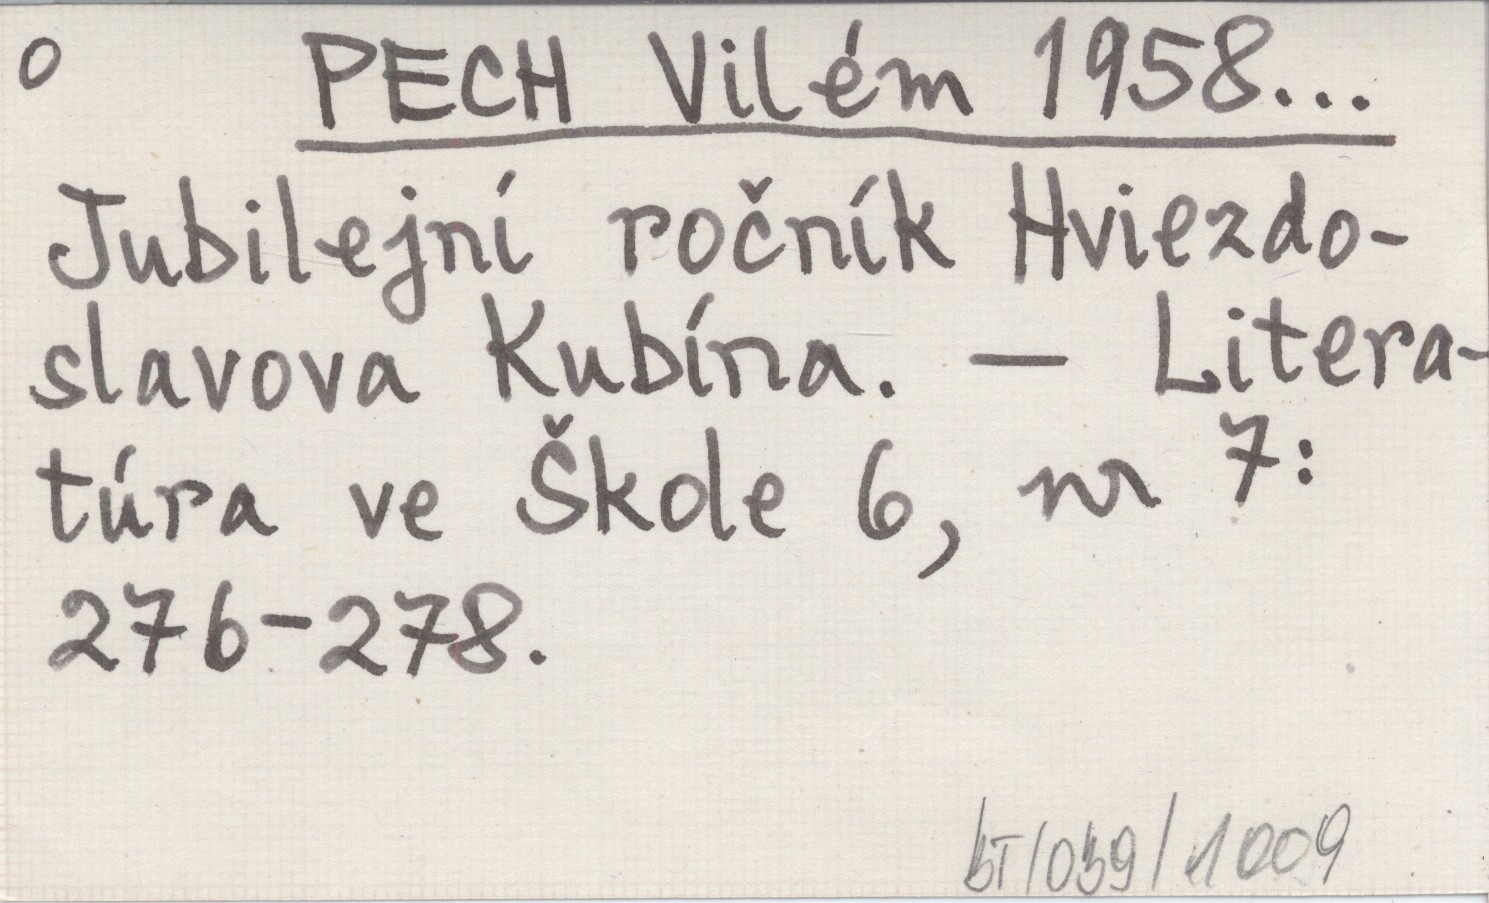 o PECH Vilém 1958...
Jubilejní ročník Hviezdo-
slavova Kubína. — Litera-
túra ve Škole 6, nr 7:
276-278.
bT/039/1009